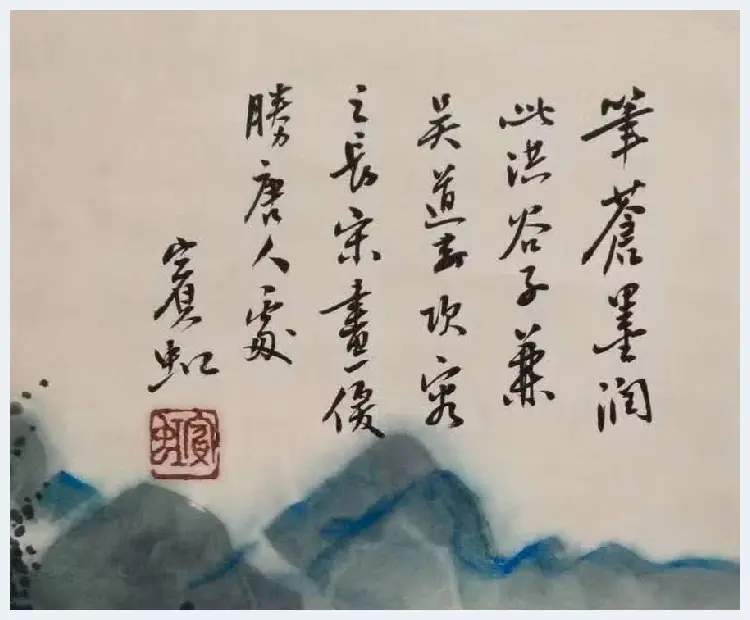 筆蒼墨潤
此洪谷子兼
吳道玄項容
之長宋畫優
勝唐人處
賓虹
賓虹